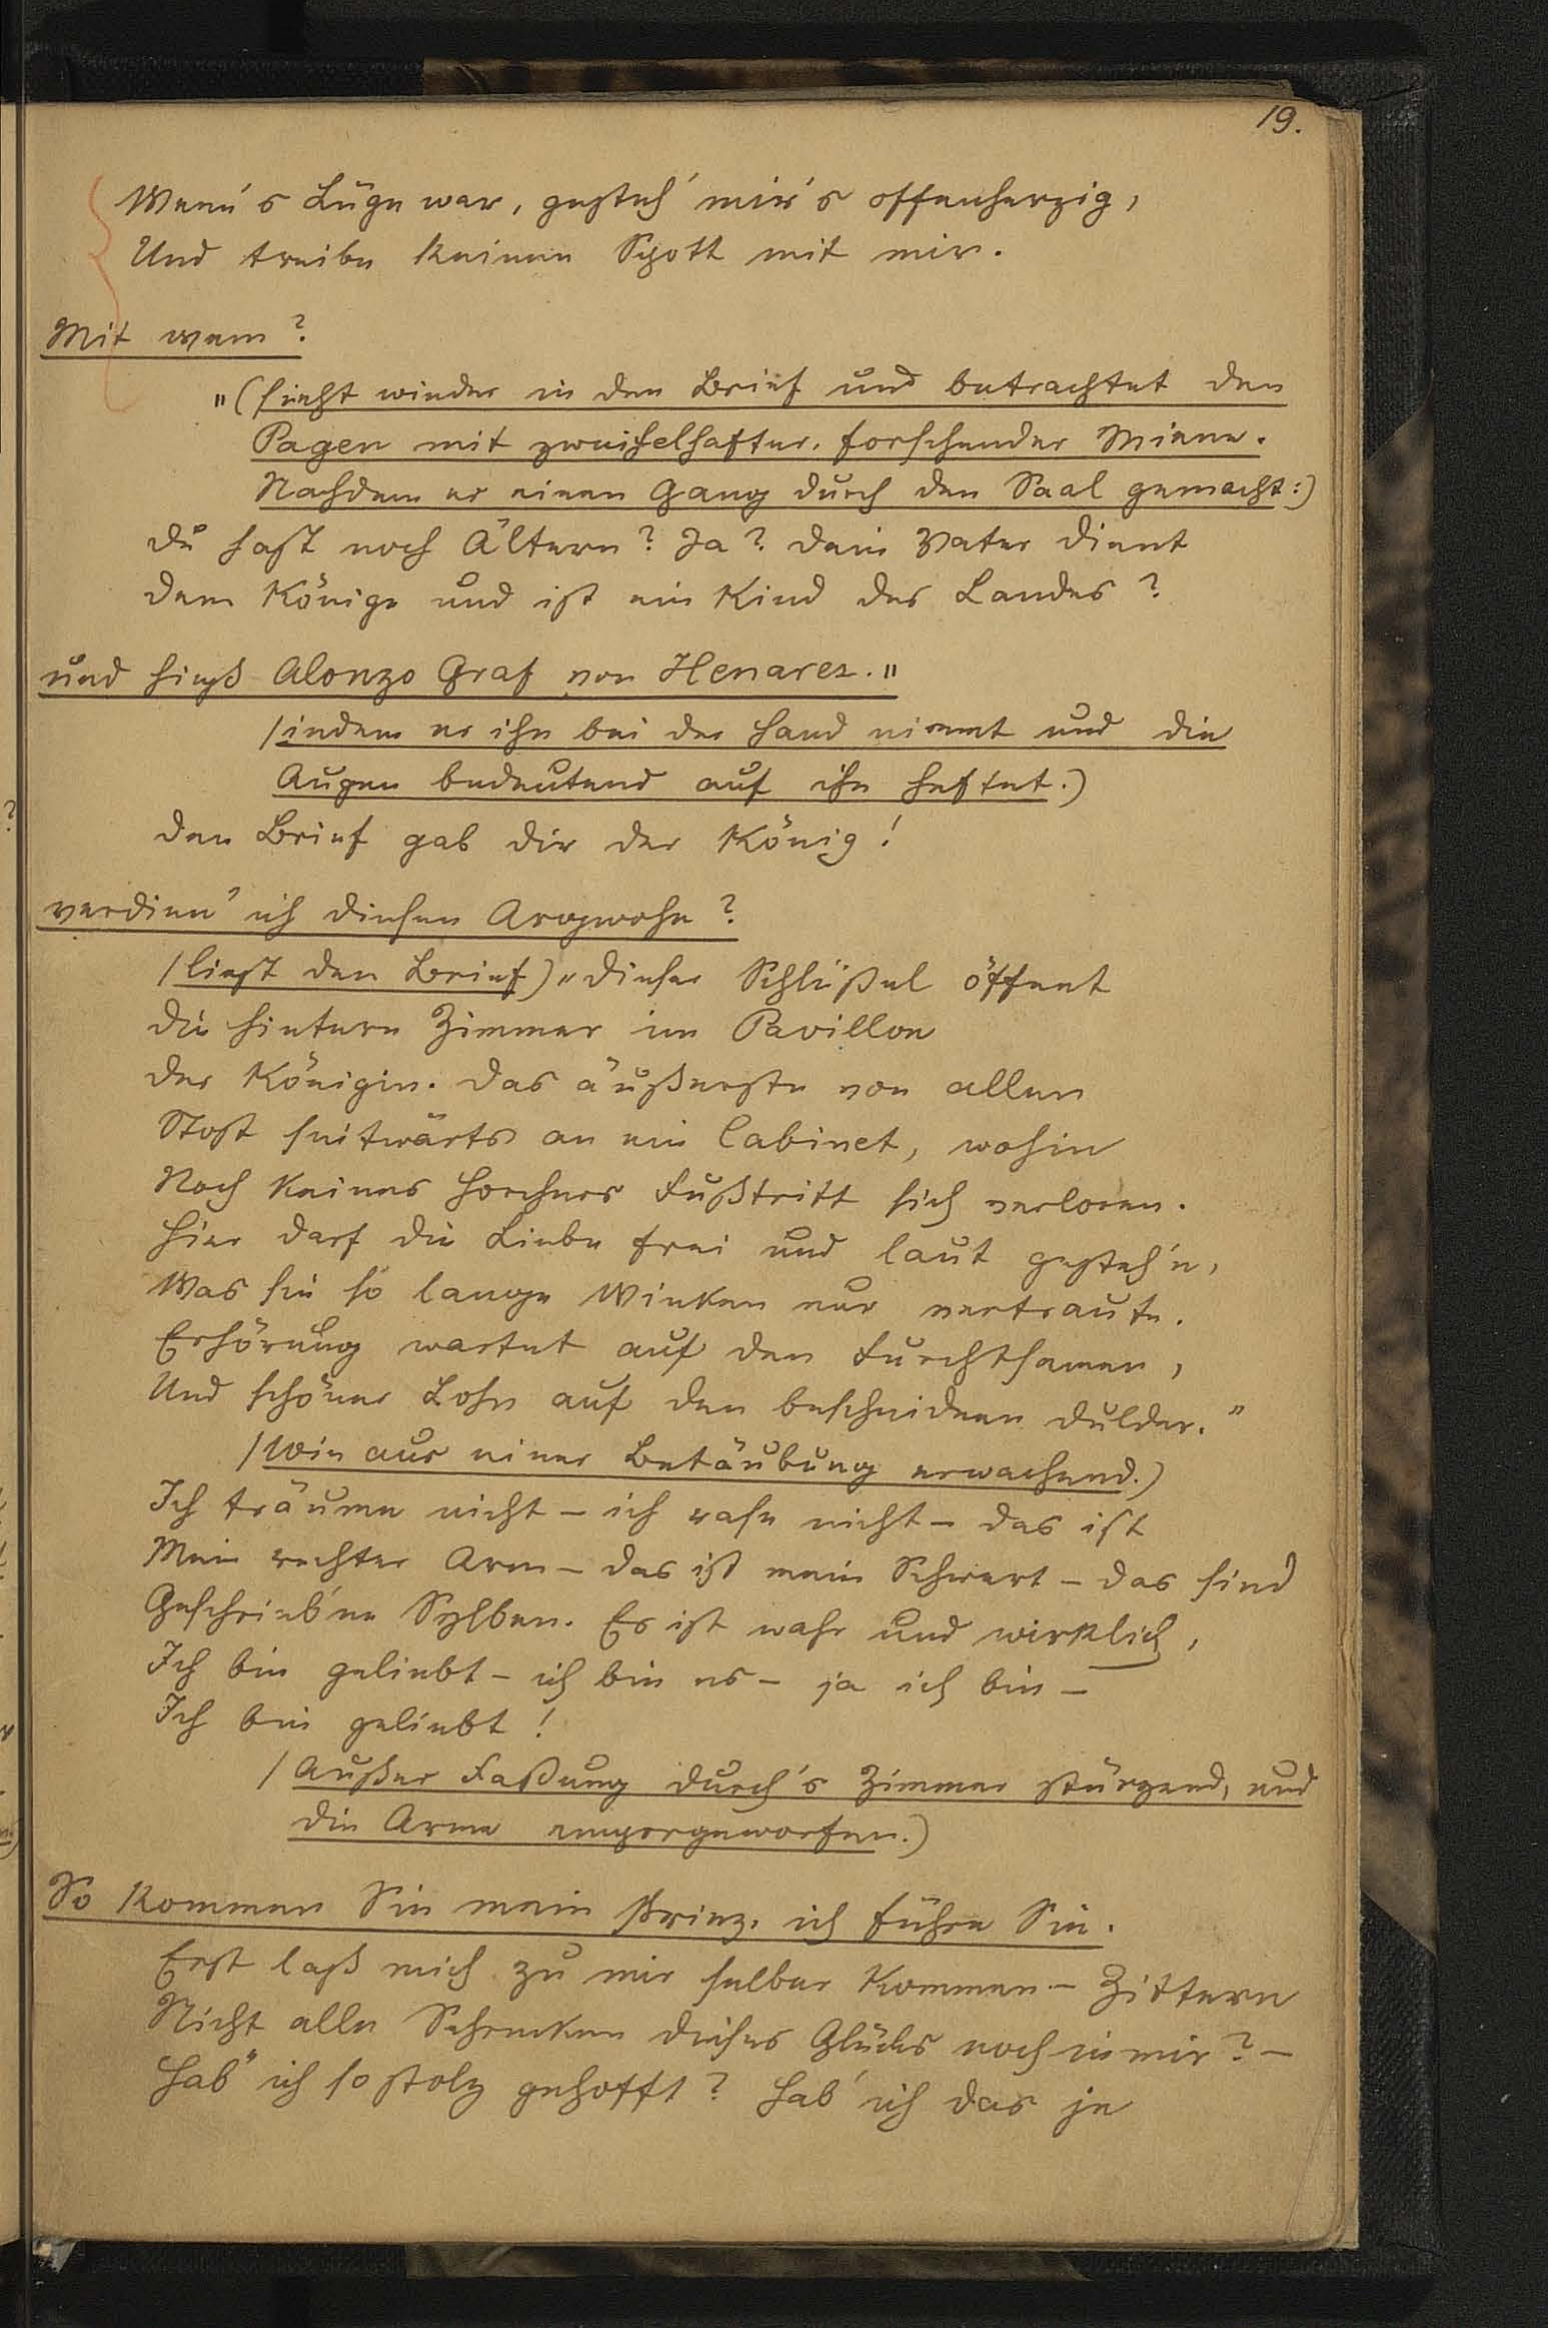 19.
Wenn's Lüge war, gesteh' mir's offenherzig,
Und treibe keinen Spott mit mir.
Mit wem?
„(sieht wieder in den Brief und betrachtet den
Pagen mit zweifelhafter, forschender Miene.
Nachdem er einen Gang durch den Saal gemacht:)
du hast noch Ältern? Ja? dein Vater dient
dem Könige und ist ein Kind des Landes?
und hieß Alonzo Graf von Henarez."
(indem er ihn bei der Hand nimmt und die
Augen bedeutend auf ihn heftet.)
den Brief gab dir der König!
verdien' ich diesen Argwohn?
(liest den Brief) „dieser Schlüßel öffnet
die hintern Zimmer im Pavillon
der Königin. das äußerste von allen
Stost seitwärts an ein Cabinet, wohin
Noch keines Horchers Fußtritt sich verloren.
Hier darf die Liebe frei und laut gesteh'n,
Was sie so lange Winken nur vertraute.
Erhörung wartet auf den Furchtsamen,
Und schöner Lohn auf den bescheidnen dulder."
(Wie aus einer Betäubung erwachend.)
Ich träume nicht – ich rase nicht – das ist
Mein rechter Arm – das ist mein Schwert – das sind
Geschrieb'ne Sylben. Es ist wahr und wirklich,
Ich bin geliebt – ich bin es – ja ich bin –
Ich bin geliebt!
(Außer Faßung durch's Zimmer stürzend, und
die Arme emporgeworfen.)
So kommen Sie mein Prinz, ich führe Sie.
Erst laß mich zu mir selber kommen – Zittern
Nicht alle Schrecken dieses Glücks noch in mir? –
Hab' ich so stolz gehofft? Hab' ich das je